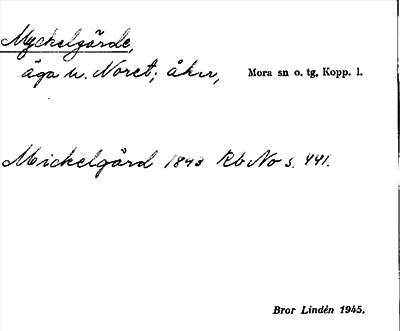 Myckelgärde,
äga u. Noret; åker, Mora sn o. tg, Kopp. l.
Mickelgärd 1843 Rb No s. 441.
Bror Lindén 1945.